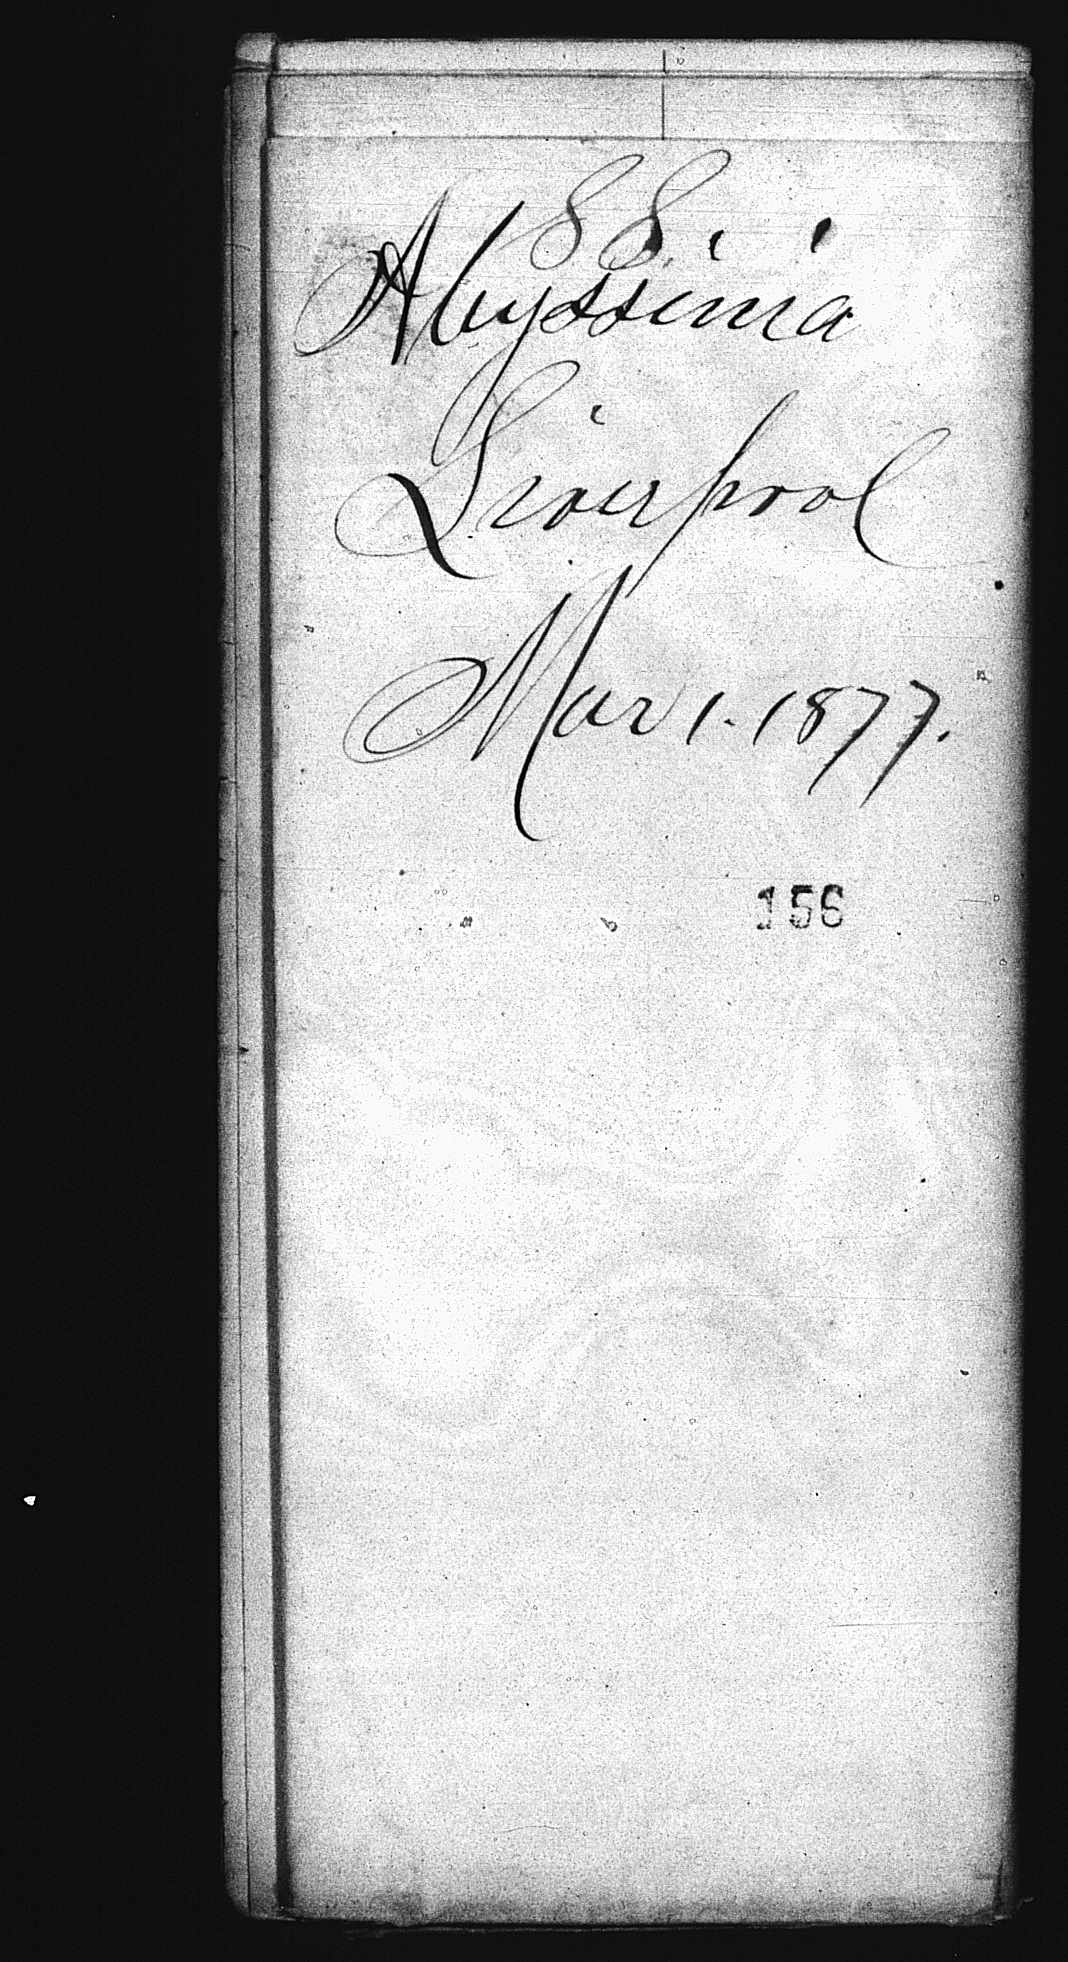 SS.
Abyssinia
Liverpool
Mar 1. 1877.
156